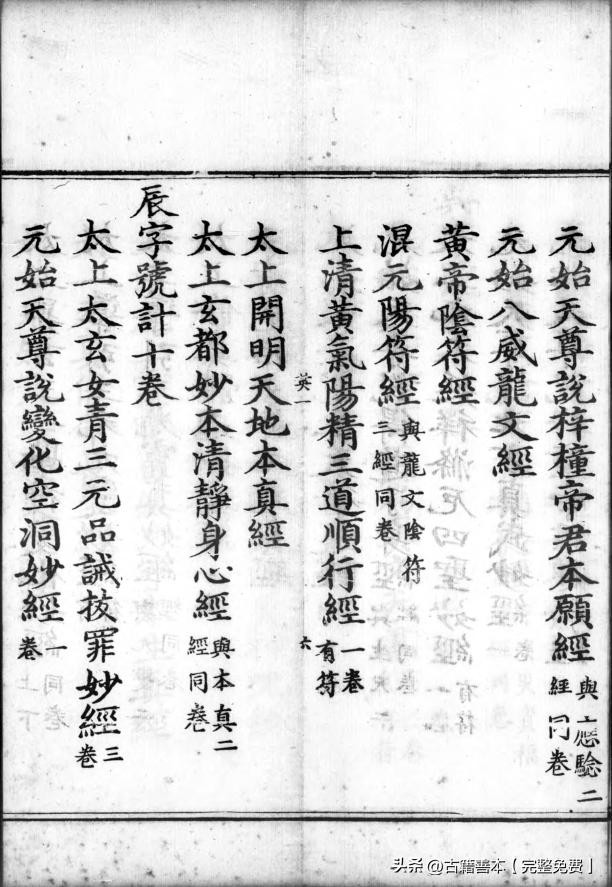 元始天尊說梓橦帝君本願經 與上應驗二經同卷
元始八威龍文經
黃帝陰符經
混元陽符經 與龍文陰符三經同卷
上清黃氣陽精三道順行經 一卷有符
英一
六
太上開明天地本真經
太上玄都妙本清靜身心經 與本真二經同卷
辰字號計十卷
太上太玄女青三元品誡拔罪妙經 三卷
元始天尊說變化空洞妙經 一卷
头条 @古籍善本【完整免费】